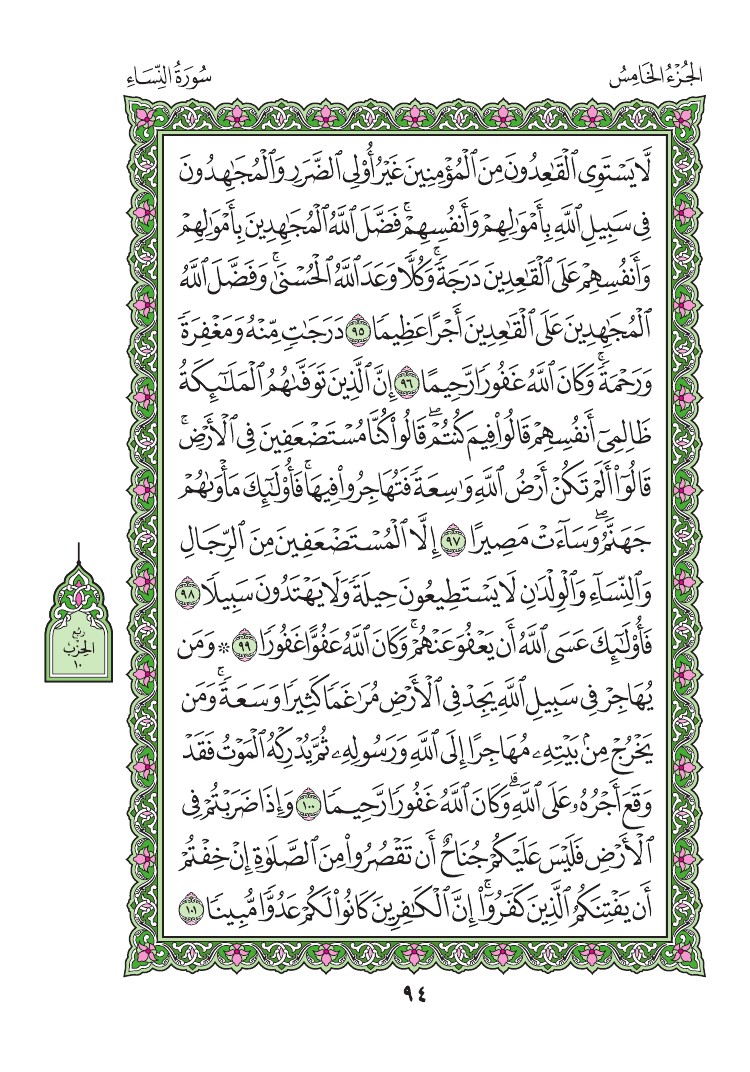 الجُزْءُ الخَامِسُ
سُورَةُ النِّسَاءِ
لَّا يَسْتَوِى ٱلْقَٰعِدُونَ مِنَ ٱلْمُؤْمِنِينَ غَيْرُ أُو۟لِى ٱلضَّرَرِ وَٱلْمُجَٰهِدُونَ
فِى سَبِيلِ ٱللَّهِ بِأَمْوَٰلِهِمْ وَأَنفُسِهِمْ ۚ فَضَّلَ ٱللَّهُ ٱلْمُجَٰهِدِينَ بِأَمْوَٰلِهِمْ
وَأَنفُسِهِمْ عَلَى ٱلْقَٰعِدِينَ دَرَجَةً ۚ وَكُلًّا وَعَدَ ٱللَّهُ ٱلْحُسْنَىٰ ۚ وَفَضَّلَ ٱللَّهُ
ٱلْمُجَٰهِدِينَ عَلَى ٱلْقَٰعِدِينَ أَجْرًا عَظِيمًا ٩٥ دَرَجَٰتٍ مِّنْهُ وَمَغْفِرَةً
وَرَحْمَةً ۚ وَكَانَ ٱللَّهُ غَفُورًا رَّحِيمًا ٩٦ إِنَّ ٱلَّذِينَ تَوَفَّىٰهُمُ ٱلْمَلَٰٓئِكَةُ
ظَالِمِىٓ أَنفُسِهِمْ قَالُوا۟ فِيمَ كُنتُمْ ۖ قَالُوا۟ كُنَّا مُسْتَضْعَفِينَ فِى ٱلْأَرْضِ ۚ
قَالُوٓا۟ أَلَمْ تَكُنْ أَرْضُ ٱللَّهِ وَٰسِعَةً فَتُهَاجِرُوا۟ فِيهَا ۚ فَأُو۟لَٰٓئِكَ مَأْوَىٰهُمْ
جَهَنَّمُ ۖ وَسَآءَتْ مَصِيرًا ٩٧ إِلَّا ٱلْمُسْتَضْعَفِينَ مِنَ ٱلرِّجَالِ
وَٱلنِّسَآءِ وَٱلْوِلْدَٰنِ لَا يَسْتَطِيعُونَ حِيلَةً وَلَا يَهْتَدُونَ سَبِيلًا ٩٨
فَأُو۟لَٰٓئِكَ عَسَى ٱللَّهُ أَن يَعْفُوَ عَنْهُمْ ۚ وَكَانَ ٱللَّهُ عَفُوًّا غَفُورًا ٩٩ ۞ وَمَن
يُهَاجِرْ فِى سَبِيلِ ٱللَّهِ يَجِدْ فِى ٱلْأَرْضِ مُرَٰغَمًا كَثِيرًا وَسَعَةً ۚ وَمَن
يَخْرُجْ مِنۢ بَيْتِهِۦ مُهَاجِرًا إِلَى ٱللَّهِ وَرَسُولِهِۦ ثُمَّ يُدْرِكْهُ ٱلْمَوْتُ فَقَدْ
وَقَعَ أَجْرُهُۥ عَلَى ٱللَّهِ ۗ وَكَانَ ٱللَّهُ غَفُورًا رَّحِيمًا ١٠٠ وَإِذَا ضَرَبْتُمْ فِى
ٱلْأَرْضِ فَلَيْسَ عَلَيْكُمْ جُنَاحٌ أَن تَقْصُرُوا۟ مِنَ ٱلصَّلَوٰةِ إِنْ خِفْتُمْ
أَن يَفْتِنَكُمُ ٱلَّذِينَ كَفَرُوٓا۟ ۚ إِنَّ ٱلْكَٰفِرِينَ كَانُوا۟ لَكُمْ عَدُوًّا مُّبِينًا ١٠١
رُبْع
الحِزْبِ
١٠
٩٤